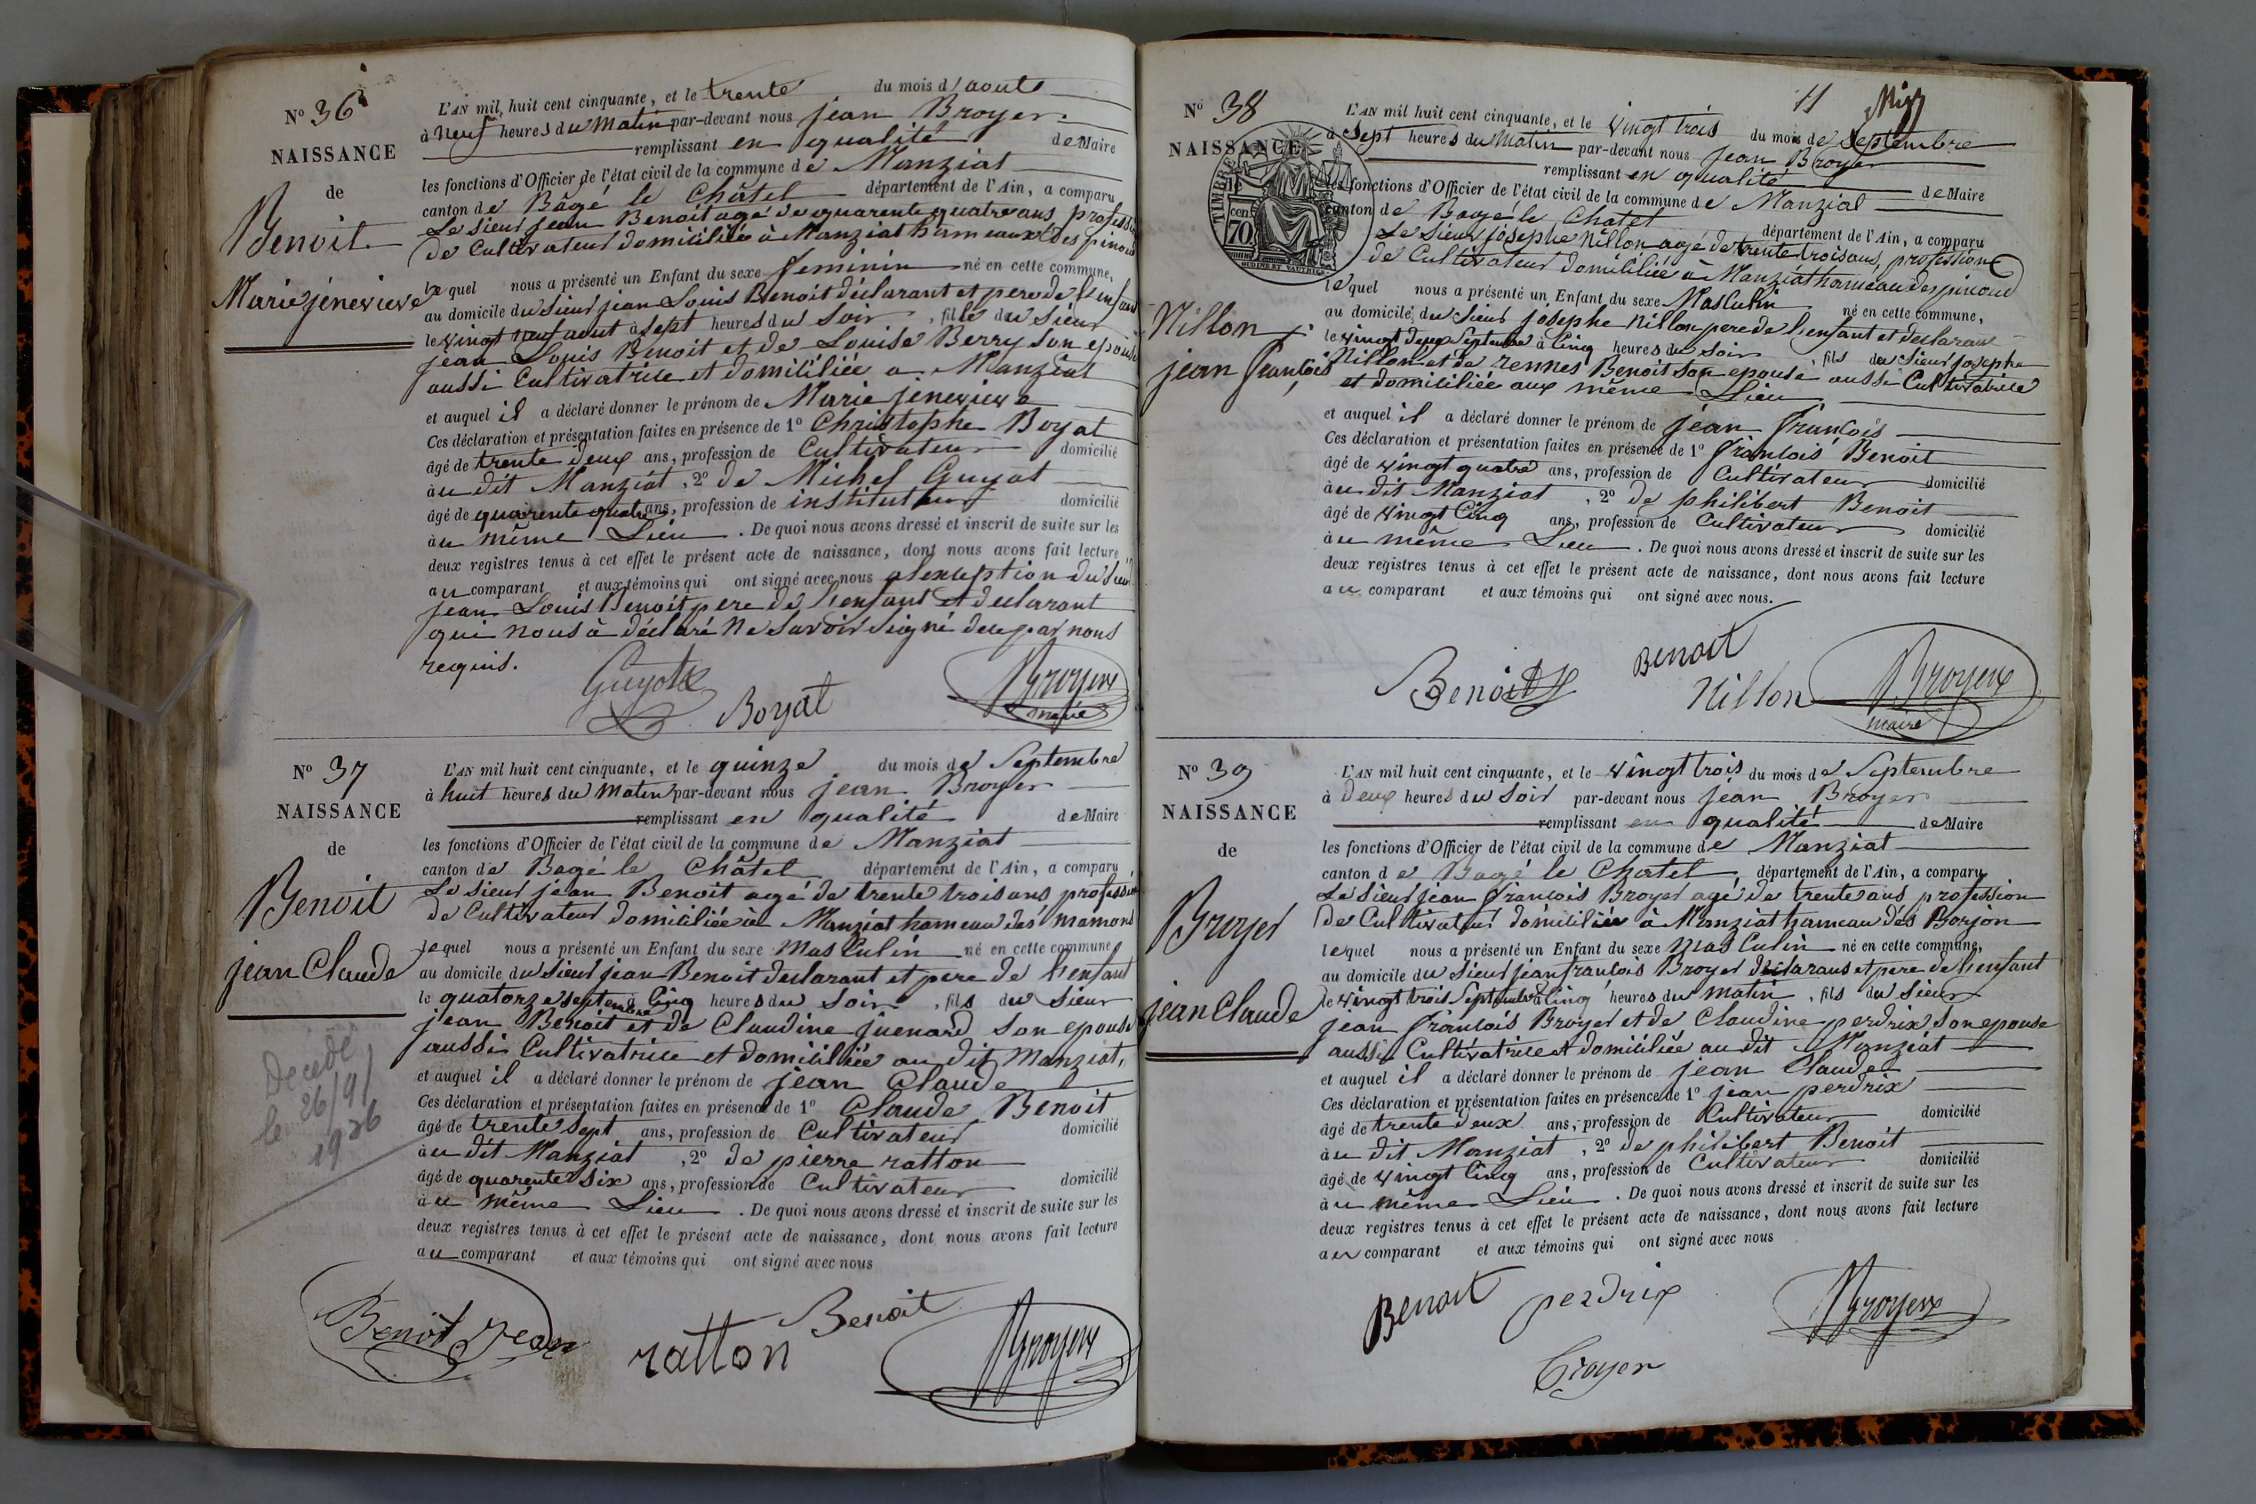 No 36
NAISSANCE
de
Benoit
Marie jenevieve
L'AN mil huit cent cinquante, et le trente du mois d'aoute
à neuf heures du matin par-devant nous jean Broyer
remplissant en qualité de Maire
les fonctions d'Officier de l'état civil de la commune de Manziat
canton de Bâgé le Châtel département de l'Ain, a comparu
Le sieur jean Benoit agé de quarente quatre ans profession
de Cultivateur domiciliée à Manziat hameaux des pinoux
lequel nous a présenté un Enfant du sexe feminin né en cette commune,
au domicile du sieur jean Louis Benoit déclarant et pere de l'enfant
le vingt neuf aout à sept heures du soir, fille du sieur
jean Louis Benoit et de Louise Berry son epouse
aussi Cultivatrice et domiciliée a Manziat
et auquel il a déclaré donner le prénom de Marie jenevieve
Ces déclaration et présentation faites en présence de 1º Christophe Boyat
âgé de trente deux ans, profession de Cultivateur domicilié
au dit Manziat, 2º de Michel Guyot
âgé de quarente quatre ans, profession de instituteur domicilié
au même Lieu. De quoi nous avons dressé et inscrit de suite sur les
deux registres tenus à cet effet le présent acte de naissance, dont nous avons fait lecture
au comparant et aux témoins qui ont signé avec nous alexception du sieur
jean Louis Benoit pere de l'enfant et declarant
qui nous à déclaré ne savoir signé de ce par nous
requis.
Guyot
Boyat
Broyer
maire
No 37
NAISSANCE
de
Benoit
jean Claude
Decédé
le 26/9/
1926
L'AN mil huit cent cinquante, et le quinze du mois de Septembre
à huit heures du matin par-devant nous jean Broyer
remplissant en qualité de Maire
les fonctions d'Officier de l'état civil de la commune de Manziat
canton de Bagé le Châtel département de l'Ain, a comparu
Le sieur jean Benoit agé de trente trois ans profession
de Cultivateur domiciliée à Manziat hameau des mamons
lequel nous a présenté un Enfant du sexe masCulin né en cette commune
au domicile du sieur jean Benoit declarant et pere de l'enfant
le quatorze septembre à Cinq heures du soir, fils du sieur
jean Benoit et de Claudine juenard son epouse
aussi Cultivatrice et domiciliée au dit Manziat,
et auquel il a déclaré donner le prénom de jean Claude
Ces déclaration et présentation faites en présence de 1º Claude Benoit
âgé de trente sept ans, profession de Cultivateur domicilié
au dit Manziat, 2º de pierre ratton
âgé de quarente six ans, profession de Cultivateur domicilié
au même Lieu. De quoi nous avons dressé et inscrit de suite sur les
deux registres tenus à cet effet le présent acte de naissance, dont nous avons fait lecture
au comparant et aux témoins qui ont signé avec nous
Benoit jean
ratton
Benoit
Broyer
11
No 38
NAISSANCE
TIMBRE
70
Nillon
jean françois
L'AN mil huit cent cinquante, et le vingt trois du mois de Septembre
à sept heures du matin par-devant nous jean Broyer
remplissant en qualité de Maire
les fonctions d'Officier de l'état civil de la commune de Manziat
canton de Bagé le Chatel département de l'Ain, a comparu
Le sieur josephe Nillon agé de trente trois ans, profession
de Cultivateur domiciliée à Manziat hameau des pinoux
lequel nous a présenté un Enfant du sexe MasCulin né en cette commune,
au domicile du sieur josephe Nillon pere de l'enfant et declarant
le vingt deux Septembre à Cinq heures du soir, fils du sieur josephe
Nillon et de rennes Benoit son epouse aussi Cultivatrice
et domiciliée aux même Lieu
et auquel il a déclaré donner le prénom de jean françois
Ces déclaration et présentation faites en présence de 1º françois Benoit
âgé de vingt quatre ans, profession de Cultivateur domicilié
au dit Manziat, 2º de philibert Benoit
âgé de vingt Cinq ans, profession de Cultivateur domicilié
au même Lieu. De quoi nous avons dressé et inscrit de suite sur les
deux registres tenus à cet effet le présent acte de naissance, dont nous avons fait lecture
au comparant et aux témoins qui ont signé avec nous.
Benoit
Benoit
Nillon
Broyer
maire
No 39
NAISSANCE
de
Broyer
jean Claude
L'AN mil huit cent cinquante, et le vingt trois du mois de Septembre
à deux heures du soir par-devant nous jean Broyer
remplissant en qualité de Maire
les fonctions d'Officier de l'état civil de la commune de Manziat
canton de Bagé le Chatel département de l'Ain, a comparu
Le sieur jean françois Broyer agé de trente ans profession
de Cultivateur domiciliée à Manziat hameau des Borjon
lequel nous a présenté un Enfant du sexe masCulin né en cette commune,
au domicile du sieur jean françois Broyer déclarant et pere de l'enfant
le vingt trois Septembre à Cinq heures du matin, fils du sieur
jean françois Broyer et de Claudine perdrix son epouse
aussi Cultivatrice et domiciliée au dit Manziat
et auquel il a déclaré donner le prénom de jean Claude
Ces déclaration et présentation faites en présence de 1º jean perdrix
âgé de trente deux ans, profession de Cultivateur domicilié
au dit Manziat, 2º de philibert Benoit
âgé de vingt Cinq ans, profession de Cultivateur domicilié
au même Lieu. De quoi nous avons dressé et inscrit de suite sur les
deux registres tenus à cet effet le présent acte de naissance, dont nous avons fait lecture
au comparant et aux témoins qui ont signé avec nous
Benoit
perdrix
Broyer
Broyer